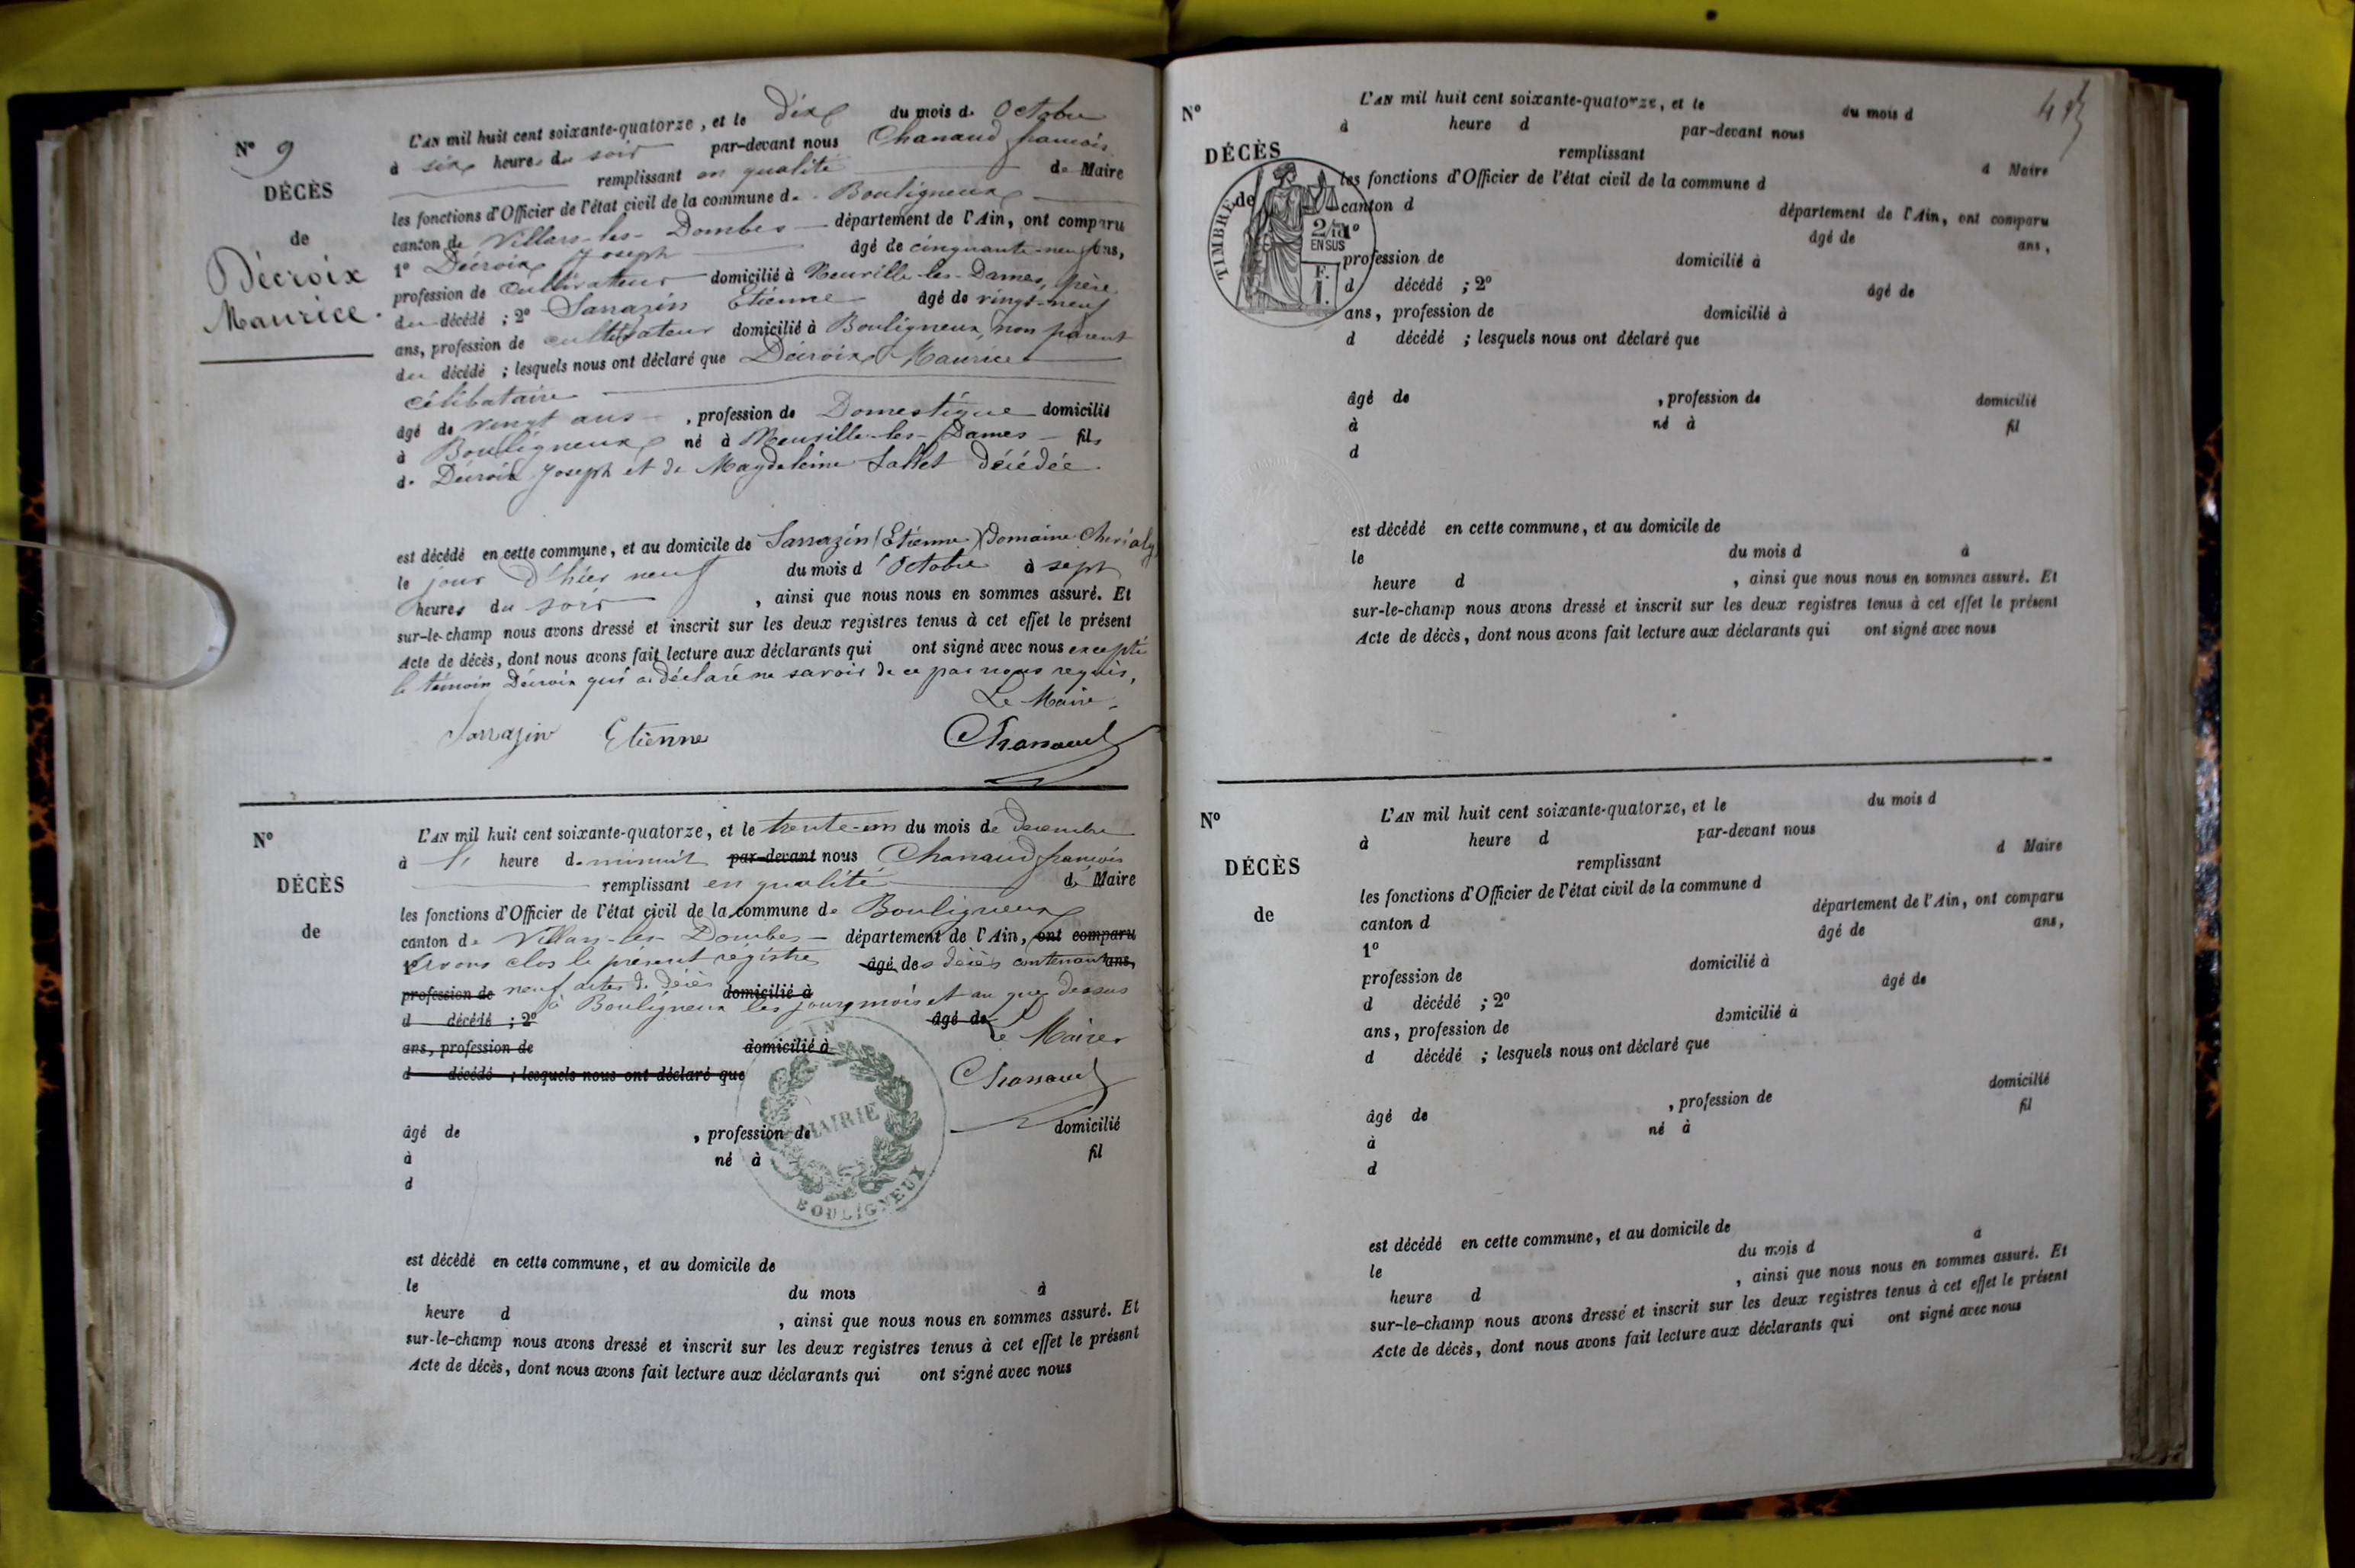 N° 9
DÉCÈS
de
Décroix
Maurice.
L'AN mil huit cent soixante-quatorze, et le dix du mois de Octobre
à six heures du soir par-devant nous Chanaud françois
remplissant en qualité de Maire
les fonctions d'Officier de l'état civil de la commune de Bouligneux
canton de Villars-les-Dombes département de l'Ain, ont comparu
1° Décroix Joseph âgé de cinquante-neuf ans,
profession de Cultivateur domicilié à Neuville-les-Dames, père
du décédé ; 2° Sarrazin Etienne âgé de vingt-neuf
ans, profession de cultivateur domicilié à Bouligneux, non parent
du décédé ; lesquels nous ont déclaré que Décroix Maurice
célibataire
âgé de vingt ans , profession de Domestique domicilié
à Bouligneux né à Neuville-les-Dames fils
de Décroix Joseph et de Magdeleine décédée
est décédé en cette commune, et au domicile de Sarrazin (Etienne) Domaine
le jour d'hier neuf du mois d'Octobre à sept
heures du soir , ainsi que nous nous en sommes assuré. Et
sur-le-champ nous avons dressé et inscrit sur les deux registres tenus à cet effet le présent
Acte de décès, dont nous avons fait lecture aux déclarants qui ont signé avec nous excepté
le témoin Décroix qui a déclaré ne savoir de ce par nous requis,
Le Maire,
Sarrazin Etienne Chanaud
N°
DÉCÈS
de
L'AN mil huit cent soixante-quatorze, et le trente-un du mois de décembre
à heure de minuit par-devant nous Chanaud françois
remplissant en qualité de Maire
les fonctions d'Officier de l'état civil de la commune de Bouligneux
canton de Villars-les-Dombes département de l'Ain, ont comparu
1° Avons clos le présent régistre âgé des décès contenant ans,
profession de neuf actes de décès domicilié à
à Bouligneux les jours mois et an que dessus
d décédé ; 2° âgé de
Le Maire
ans, profession de domicilié à
d décédé ; lesquels nous ont déclaré que
Chanaud
AIN
MAIRIE
BOULIGNEUX
âgé de , profession de domicilié
à né à fil
d
est décédé en cette commune, et au domicile de
le du mois à
heure d , ainsi que nous nous en sommes assuré. Et
sur-le-champ nous avons dressé et inscrit sur les deux registres tenus à cet effet le présent
Acte de décès, dont nous avons fait lecture aux déclarants qui ont signé avec nous
N°
DÉCÈS
de
TIMBRE
2/10
EN SUS
L'AN mil huit cent soixante-quatorze, et le du mois d
à heure d par-devant nous
remplissant d Maire
les fonctions d'Officier de l'état civil de la commune d
canton d département de l'Ain, ont comparu
1° âgé de ans,
profession de domicilié à
d décédé ; 2° âgé de
ans, profession de domicilié à
d décédé ; lesquels nous ont déclaré que
âgé de , profession de domicilié
à né à fil
d
est décédé en cette commune, et au domicile de
le du mois d à
heure d , ainsi que nous nous en sommes assuré. Et
sur-le-champ nous avons dressé et inscrit sur les deux registres tenus à cet effet le présent
Acte de décès, dont nous avons fait lecture aux déclarants qui ont signé avec nous
N°
DÉCÈS
de
L'AN mil huit cent soixante-quatorze, et le du mois d
à heure d par-devant nous
remplissant d Maire
les fonctions d'Officier de l'état civil de la commune d
canton d département de l'Ain, ont comparu
1° âgé de ans,
profession de domicilié à
d décédé ; 2° âgé de
ans, profession de domicilié à
d décédé ; lesquels nous ont déclaré que
âgé de , profession de domicilié
à né à fil
d
est décédé en cette commune, et au domicile de
le du mois d à
heure d , ainsi que nous nous en sommes assuré. Et
sur-le-champ nous avons dressé et inscrit sur les deux registres tenus à cet effet le présent
Acte de décès, dont nous avons fait lecture aux déclarants qui ont signé avec nous